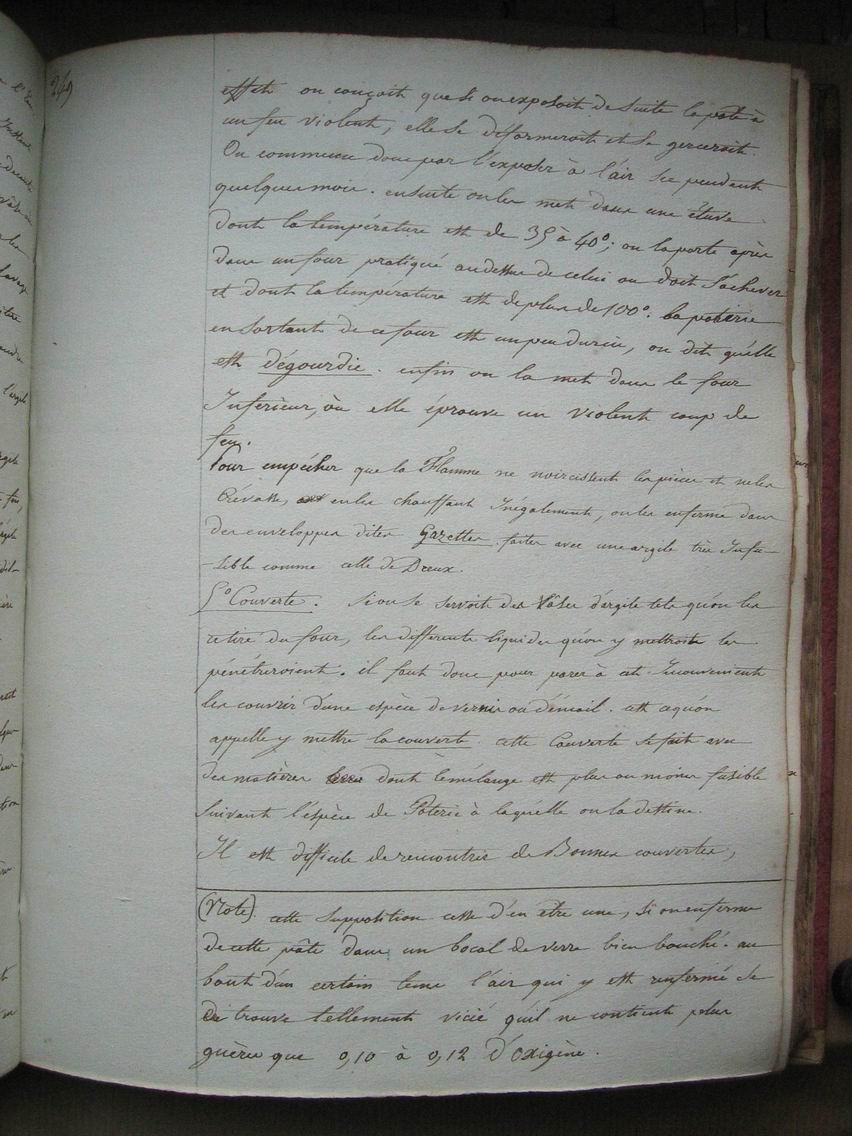 249
effets on conçoit que si on exposoit de suite la pâte à
un feu violent, elle se déformeroit et se gerceroit.
On commence donc par l'exposer à l'air sec pendant
quelques mois. ensuite on les met dans une étuve
dont la température est de 35 à 40°; on la porte après
dans un four pratiqué au dessus de celui ou doit s'achever
et dont la température est de plus de 100°. la poterie
en sortant de ce four est un peu durcie, on dit qu'elle
est dégourdie. enfin on la met dans le four
Inferieur, où elle éprouve un violent coup de
feu.
Pour empêcher que la Flamme ne noircissent les pièces et ne les
Crévasse, en les chauffant Inégalement, on les enferme dans
des enveloppes dites Gazettes. faites avec une argile très Infu-
-sible comme celle de Dreux.
5° Couverte. Si on se servoit des Vâses d'argile tels qu'on les
retire du four, les differents liquides qu'on y mettroit les
pénétreroient. il faut donc pour parer à cet Inconvenient
les couvrir d'une espèce de vernis ou d'émail. c'est ce qu'on
appelle y mettre la couverte. cette Couverte se fait avec
des matières dont le mélange est plus ou moins fusible
suivant l'éspèce de Poterie à laquelle on la destine.
Il est difficile de rencontrer de Bonnes couvertes,
(Note). cette supposition cesse d'en être une, si on enferme
de cette pâte dans un bocal de verre bien bouché. au
bout d'un certain tems l'air qui y est renfermé se
trouve tellement vicié qu'il ne contient plus
guères que 0,10 à 0,12 d'oxigène.